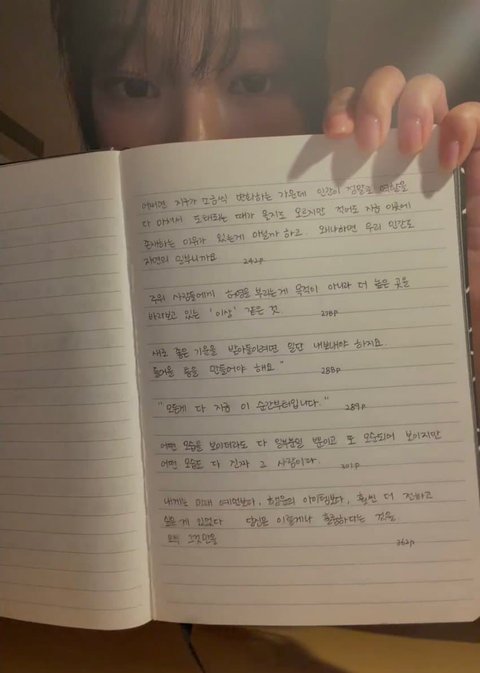 어쩌면 지구가 조금씩 변화하는 가운데 인간이 정말로 역할을
다 마쳐서 도태되는 때가 올지도 모르지만 적어도 지금 이곳에
존재하는 이유가 있는게 아닐까 하고. 왜냐하면 우리 인간도
자연의 일부니까요 242p
주위 사람들에게 허영을 부리는게 목적이 아니라 더 높은 곳을
바라보고 있는 '이상' 같은 것. 278p
새로 좋은 기운을 받아들이려면 일단 내보내야 하지요.
들어올 틈을 만들어야 해요" 288p
"모든게 다 지금 이 순간부터입니다." 289p
어떤 모습을 보이더라도 다 일부분일 뿐이고 또 모순되어 보이지만
어떤 모습도 다 진짜 그 사람이다. 301p
내게는 미래 예언보다, 행운의 아이템보다, 훨씬 더 전하고
싶은 게 있었다 당신은 이렇게나 훌륭하다는 것을
오직 그것만을 362p